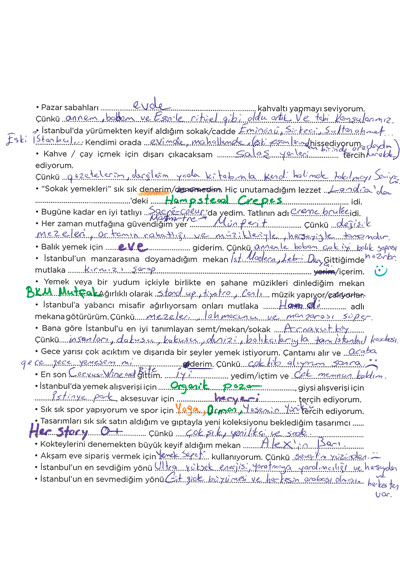 • Pazar sabahları evde kahvaltı yapmayı seviyorum.
Çünkü annem, babam ve Esen'le ritüel gibi oldu artık. Ve tabi komşularımız.
• İstanbul'da yürümekten keyif aldığım sokak/cadde Eminönü, Sirkeci, Sultanahmet...
Eski İstanbul... Kendimi orada evimde, mahallemde, hissediyorum.
• Kahve / çay içmek için dışarı çıkacaksam Salaş yerleri tercih
ediyorum.
Çünkü gazetelerim, dergilerim yada kitabımla kendi halimde takılmayı
• "Sokak yemekleri" sık sık denerim/denemedim. Hiç unutamadığım lezzet Londra'da
'deki Hampstead Crepes idi.
• Bugüne kadar en iyi tatlıyı Sacre-coeur'da yedim. Tatlının adı creme brulee idi.
Montmartre
• Her zaman mutfağına güvendiğim yer Münferit Çünkü değişik
mezeleri, ortamın rahatlığı ve müzikleriyle, herşeyiyle tamamdır.
• Balık yemek için eve giderim. Çünkü annemle babam çok iyi balık yapar
• İstanbul'un manzarasına doyamadığım mekan Ist. Modern, Gittiğimde
mutlaka kırmızı şarap yerim/içerim.
• Yemek veya bir yudum içkiyle birlikte en şahane müzikleri dinlediğim mekan
BKM Mutfak ağırlıklı olarak stand up, tiyatro, canlı müzik yapıyor/çalıyorlar.
• İstanbul'a yabancı misafir ağırlıyorsam onları mutlaka Hamdi adlı
mekana götürürüm. Çünkü mezeleri, lahmacunu ve manzarası süper.
• Bana göre İstanbul'u en iyi tanımlayan semt/mekan/sokak Arnavutköy
Çünkü insanları, dokusu, kokusu, denizi, balıkçılarıyla tam İstanbul
• Gece yarısı çok acıktım ve dışarıda bir şeyler yemek istiyorum. Çantamı alır ve
gece gece yemesem mi derim. Çünkü çok kilo alıyorum sonra.
• En son gittim. iyi yedim/içtim ve çok memnun kaldım.
• İstanbul'da yemek alışverişi için Organik pazar giysi alışverişi için
İstinye park aksesuvar için heryeri tercih ediyorum.
• Sık sık spor yapıyorum ve spor için Yoga, Orman, tercih ediyorum.
• Tasarımları sık sık satın aldığım ve gıptayla yeni koleksiyonu beklediğim tasarımcı
Her story Çünkü çok şık, yenilikçi ve sade.
• Kokteylerini denemekten büyük keyif aldığım mekan Alex'in Barı.
• Akşam eve sipariş vermek için Yemek Sepeti kullanıyorum. Çünkü
• İstanbul'un en sevdiğim yönü Ultra yüksek enerjisi, yaratmaya yardımcılığı ve
• İstanbul'un en sevmediğim yönü Git gide büyümesi ve herkesin arabası olması ve
var.